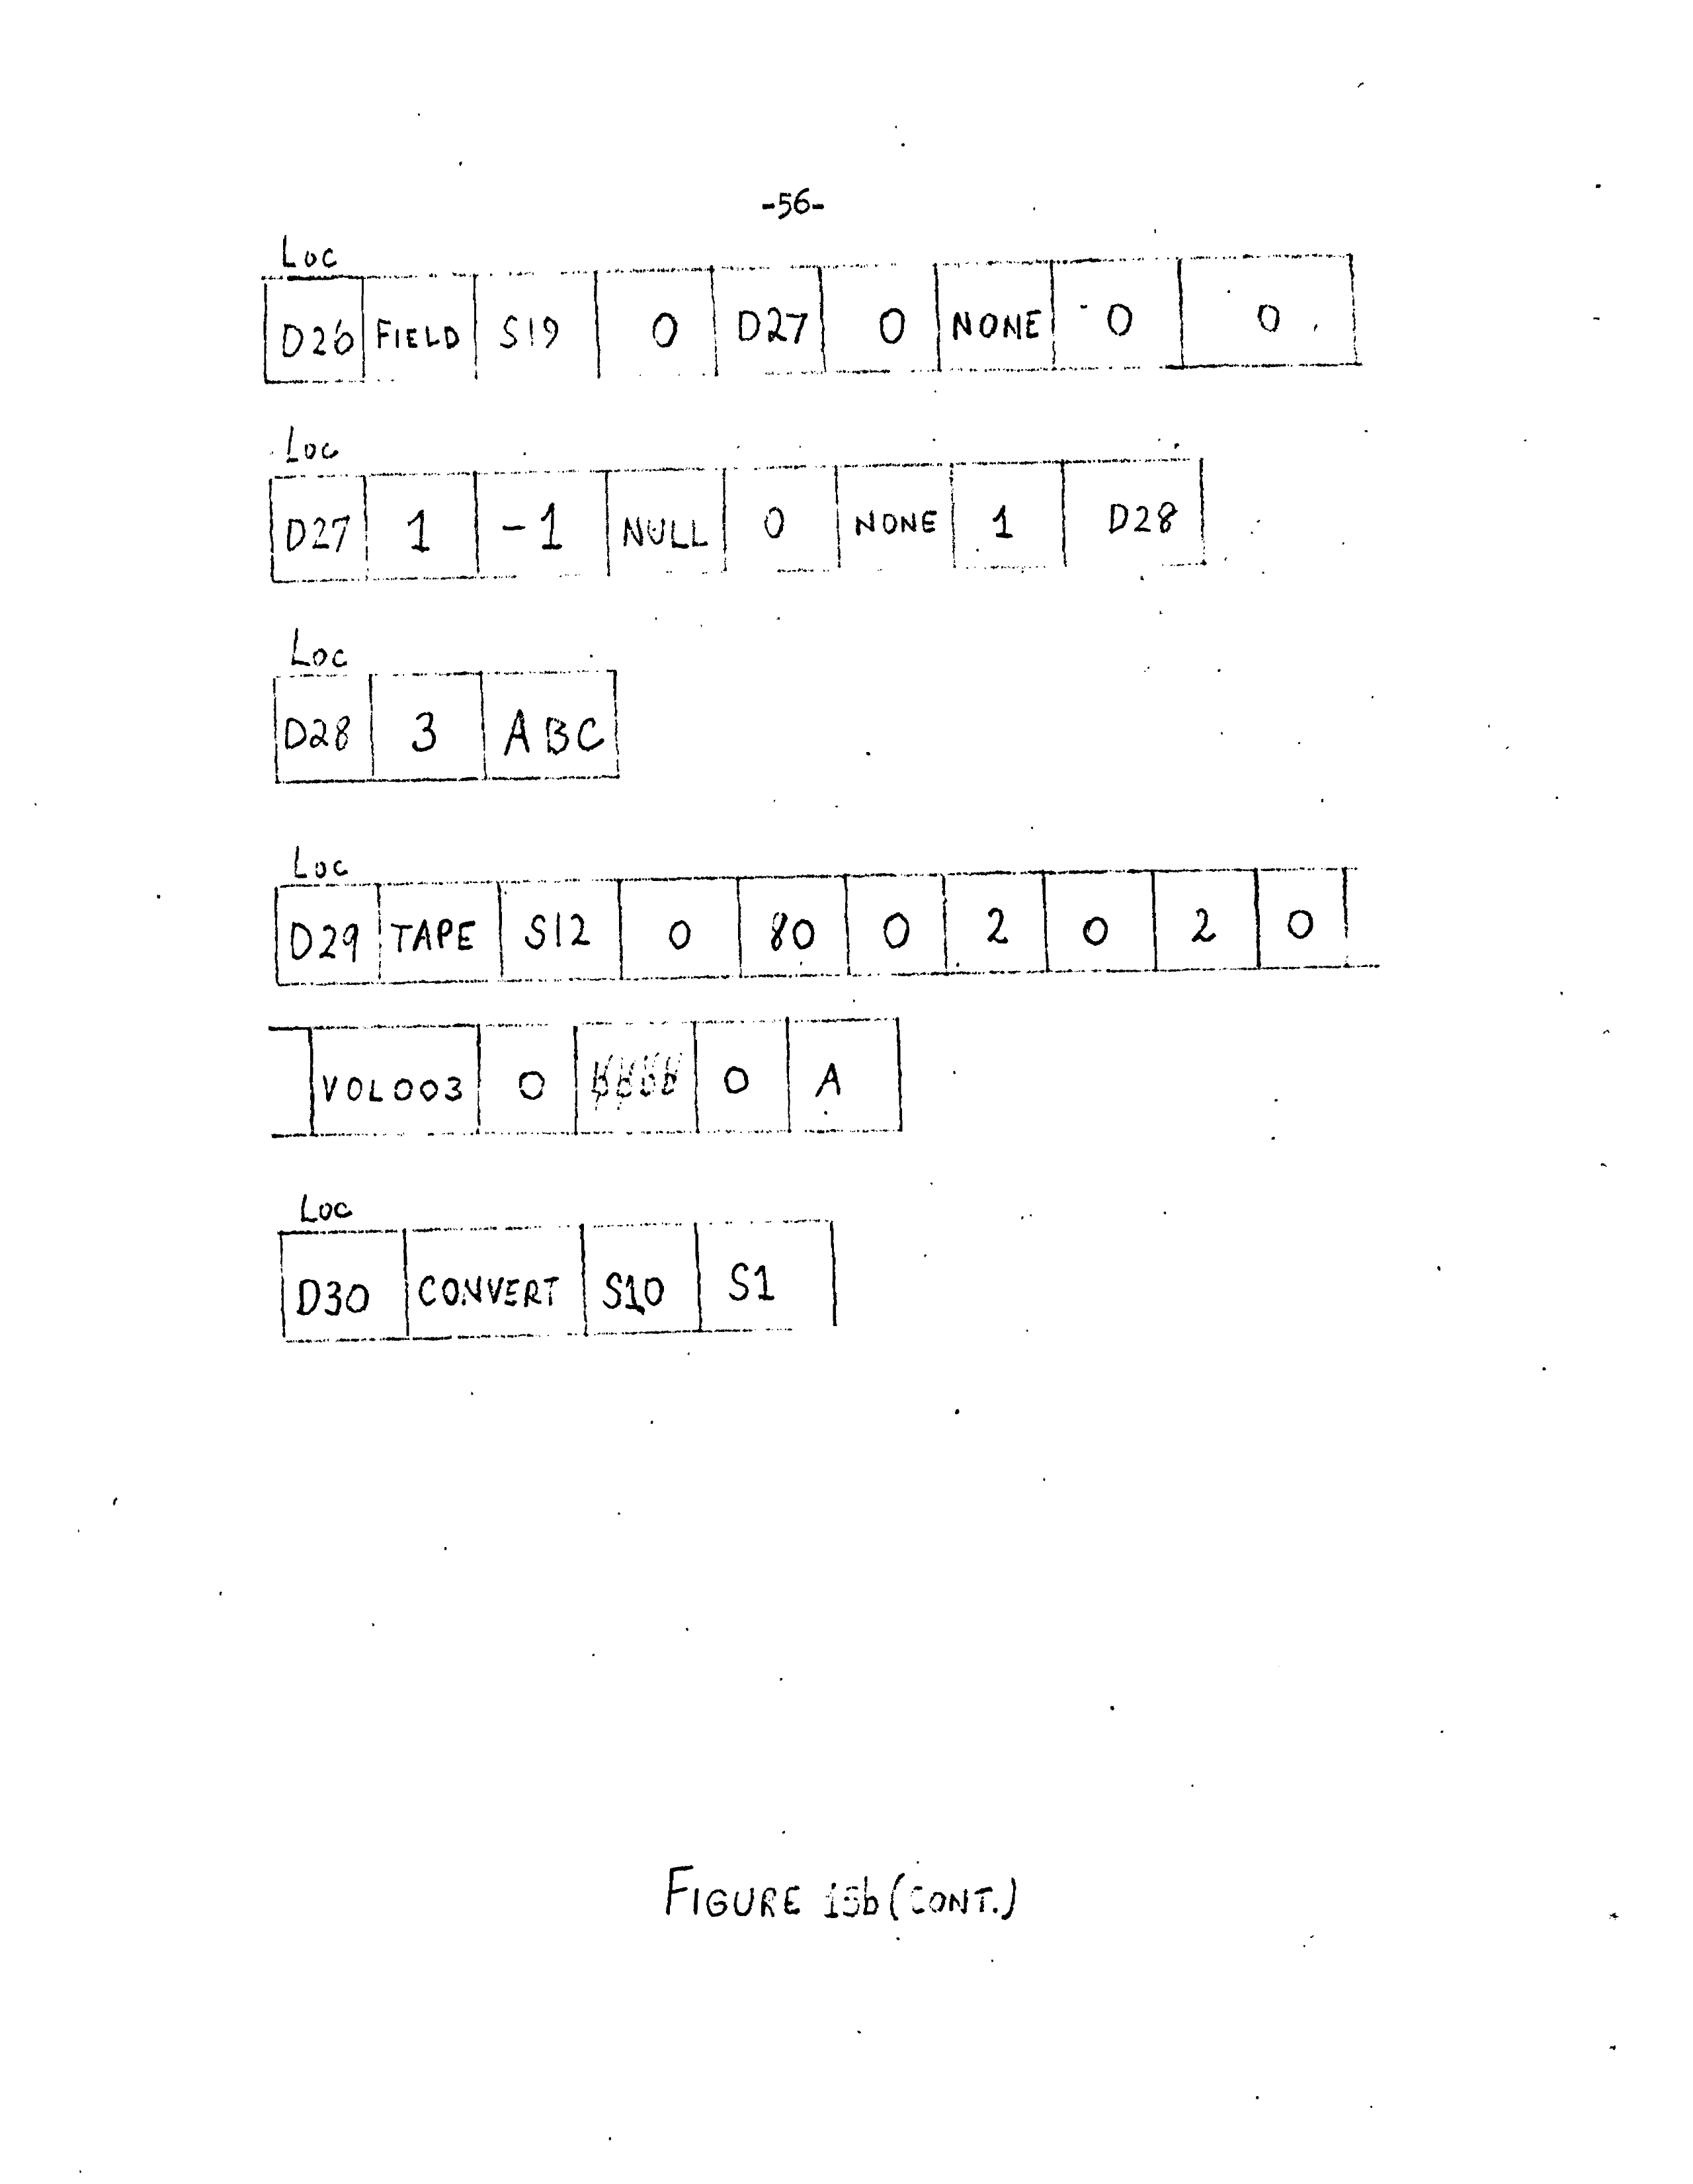 -56-
Loc
D26 FIELD S19 0 D27 0 NONE 0 0
Loc
D27 1 -1 NULL 0 NONE 1 D28
Loc
D28 3 ABC
Loc
D29 TAPE S12 0 80 0 2 0 2 0
VOL003 0 0 A
Loc
D30 CONVERT S10 S1
FIGURE 15b (CONT.)